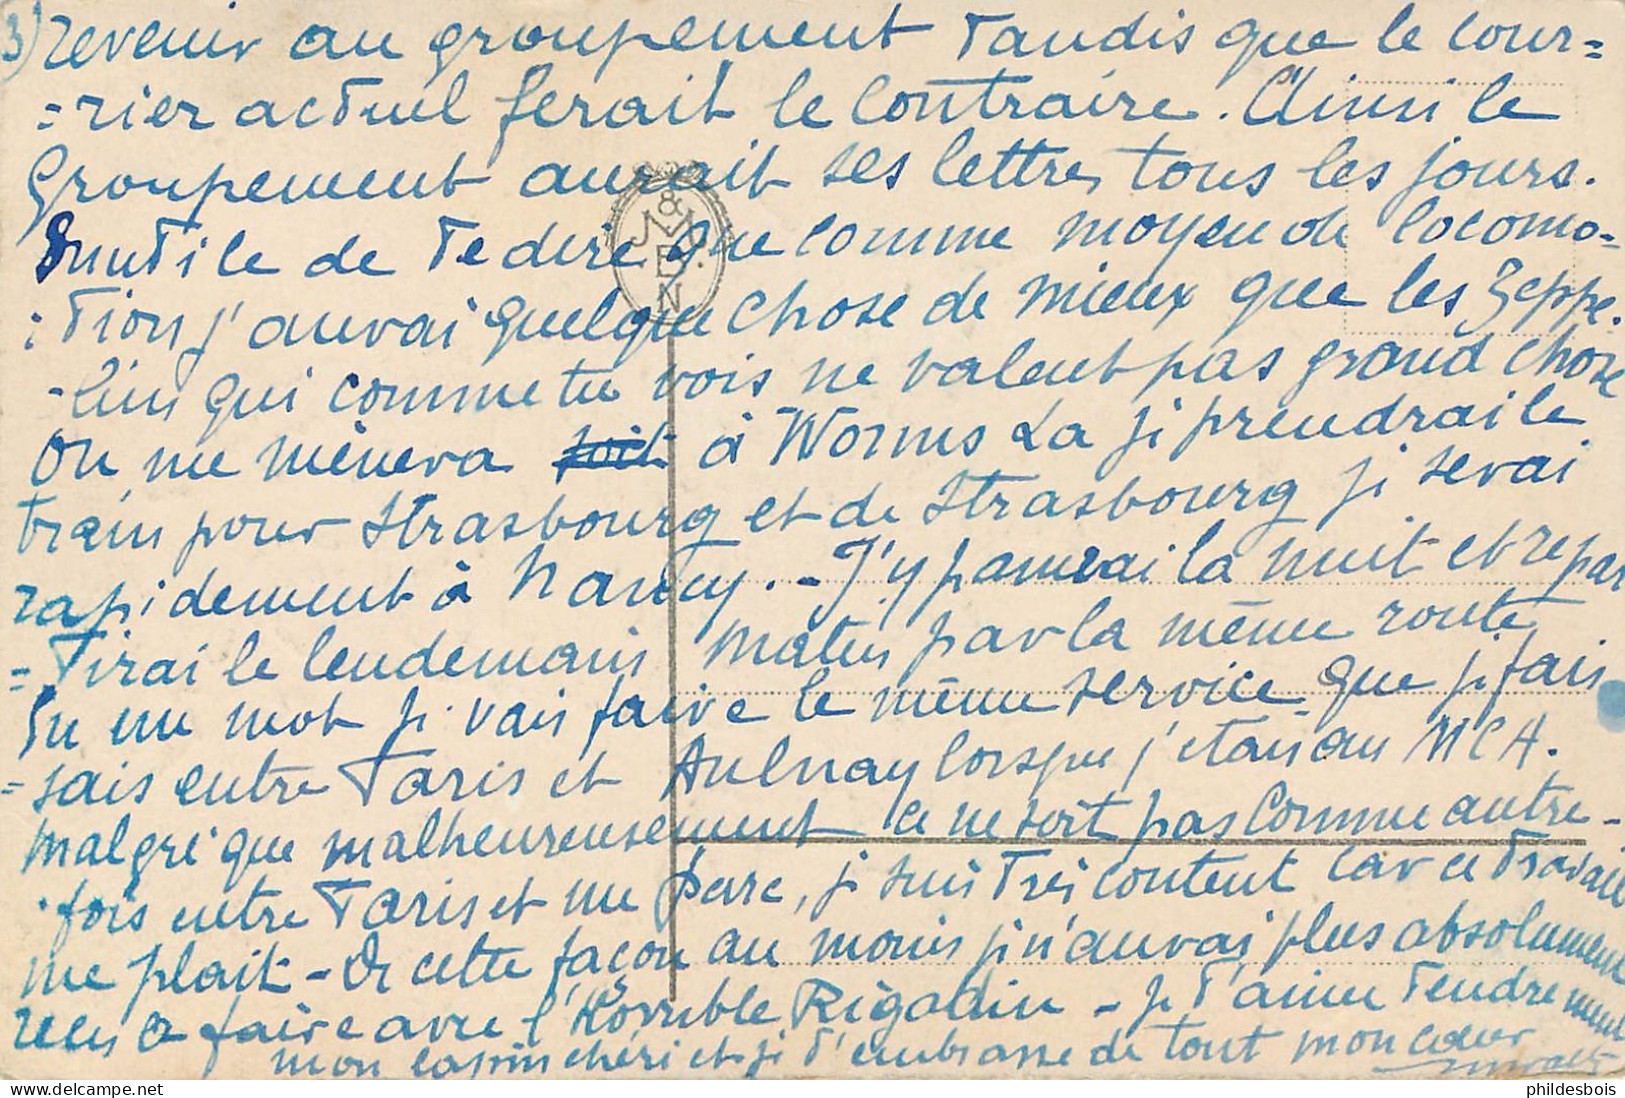 3) revenir au groupement tandis que le cour=
=rier actuel ferait le contraire. Ainsi le
Groupement aurait ses lettres tous les jours.
Inutile de te dire que comme moyen de locomo=
=tion j'aurai quelque chose de mieux que les Zeppe.
-lins qui comme tu vois ne valent pas grand chose
On me mènera à Worms La je prendrai le
train pour Strasbourg et de Strasbourg je serai
rapidement à Nancy. - J'y passerai la nuit et repar
=tirai le lendemain matin par la même route
En un mot je vais faire le même service que je fais
=sais entre Paris et Aulnay lorsque j'etais au MCA.
Malgré que malheureusement ce ne soit pas comme autre-
fois entre Paris et un Parc, je suis très content car ce travail
me plait - De cette façon au moins je n'aurai plus absolument
rien a faire avec l'Horrible Rigadin - je t'aime tendrement
mon lapin chéri et je t'embrasse de tout mon cœur
A&M
B.
N
phildesbois